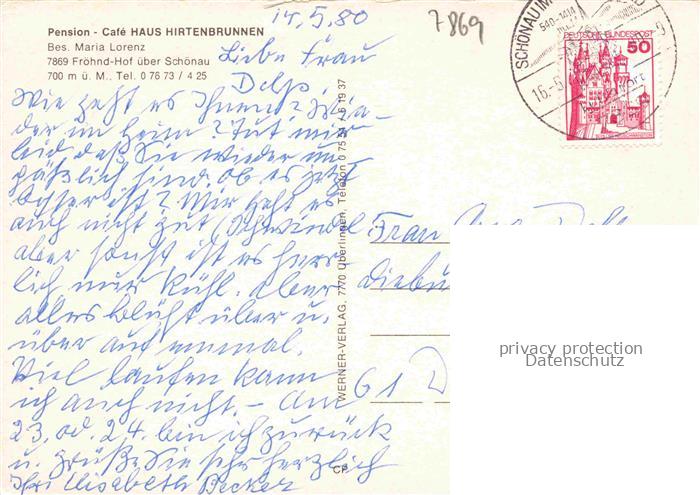 14.5.80
7869
Pension - Café HAUS HIRTENBRUNNEN
Bes. Maria Lorenz
7869 Fröhnd-Hof über Schönau
700 m ü. M., Tel. 0 76 73 / 4 25
Liebe Frau
Delp.
Wie geht es Ihnen? Wie-
der im Heim? Tut mir
leid daß Sie wieder un-
päßlich sind. ob es jetzt
besser ist? Mir geht es
auch nicht gut (Schwindel
aber sonst ist es herr-
lich nur kühl. aber
alles blüht über u.
über auf einmal.
Viel laufen kann
ich auch nicht. - Am
23. od. 24. bin ich zurück
u. grüße Sie sehr herzlich
Ihre Elisabeth Becker
WERNER-VERLAG, 7770 Überlingen, Telefon 0 75 51 / 6 19 37
CP
SCHÖNAU IM
540-1414
16.-5
DEUTSCHE BUNDESPOST
50
Frau
Diebu
61 D
privacy protection
Datenschutz